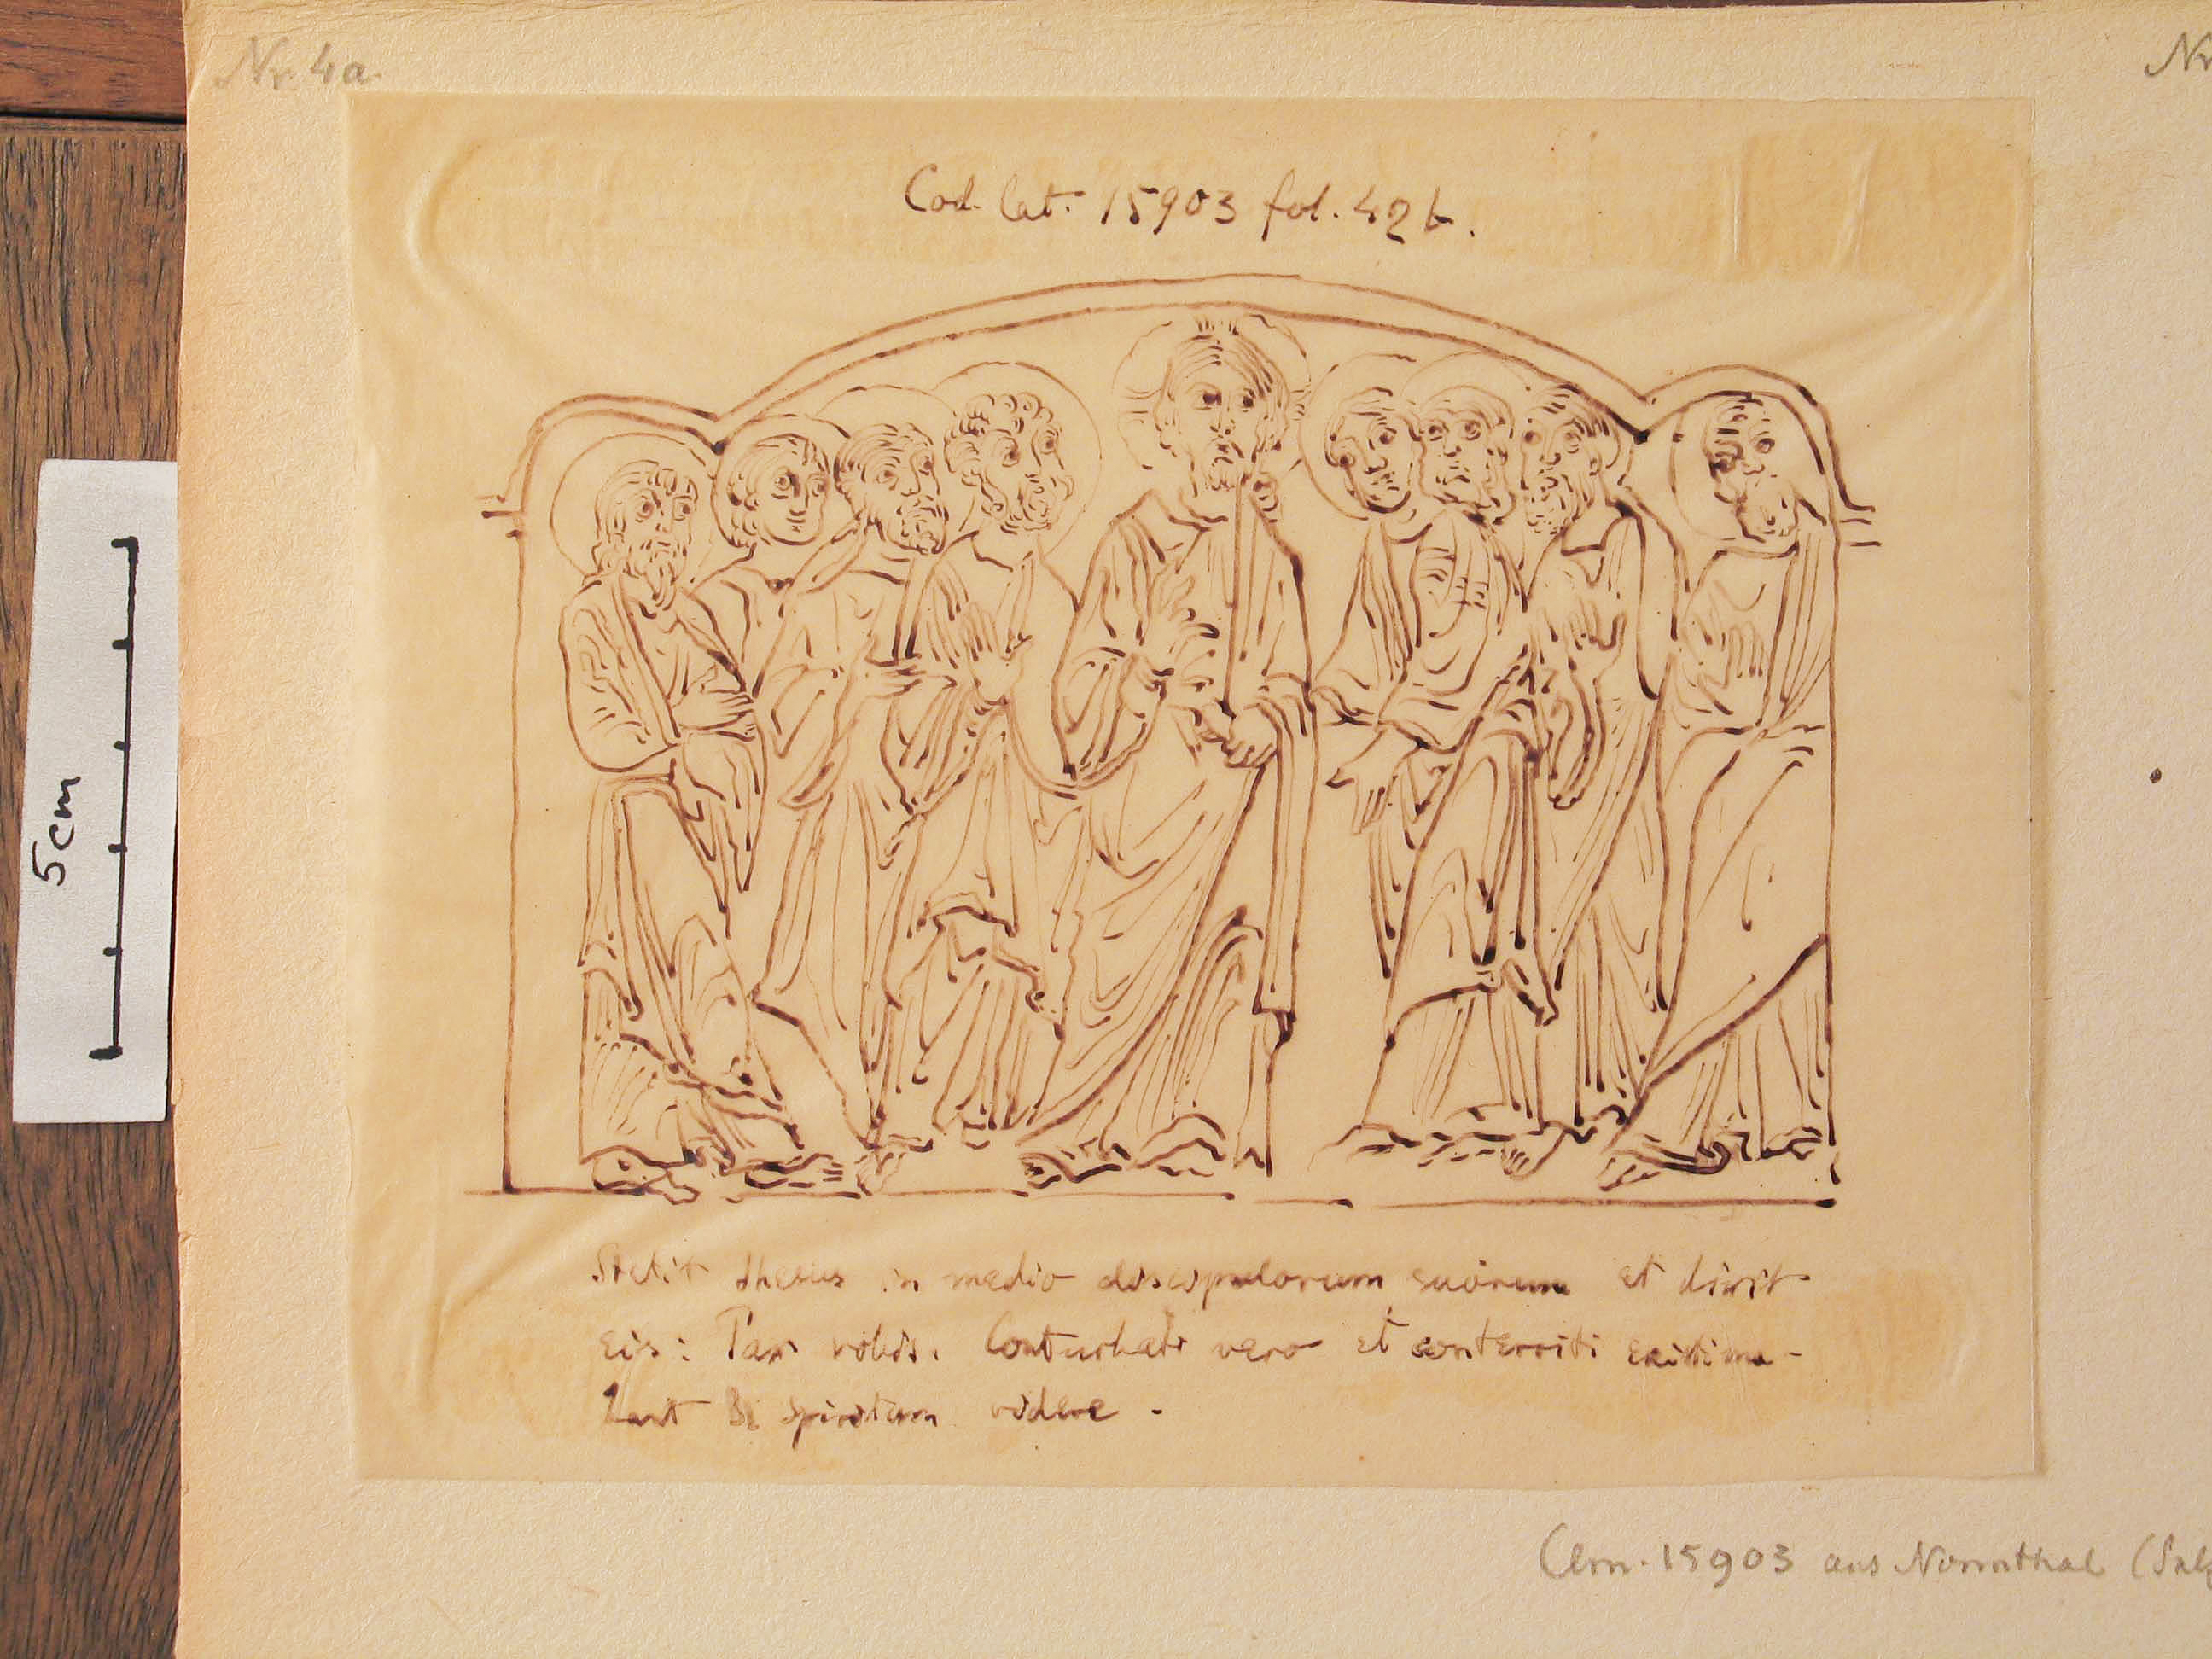 Nr. 4a.
Nr
Cod. lat. 15903 fol. 42 b.
5cm
Stetit Ihesus in medio discipulorum suorum et dixit
eis: Pax vobis. Conturbati vero et conterriti existima-
bant se spiritum videre -
Clm. 15903 aus Nonnthal (Salz